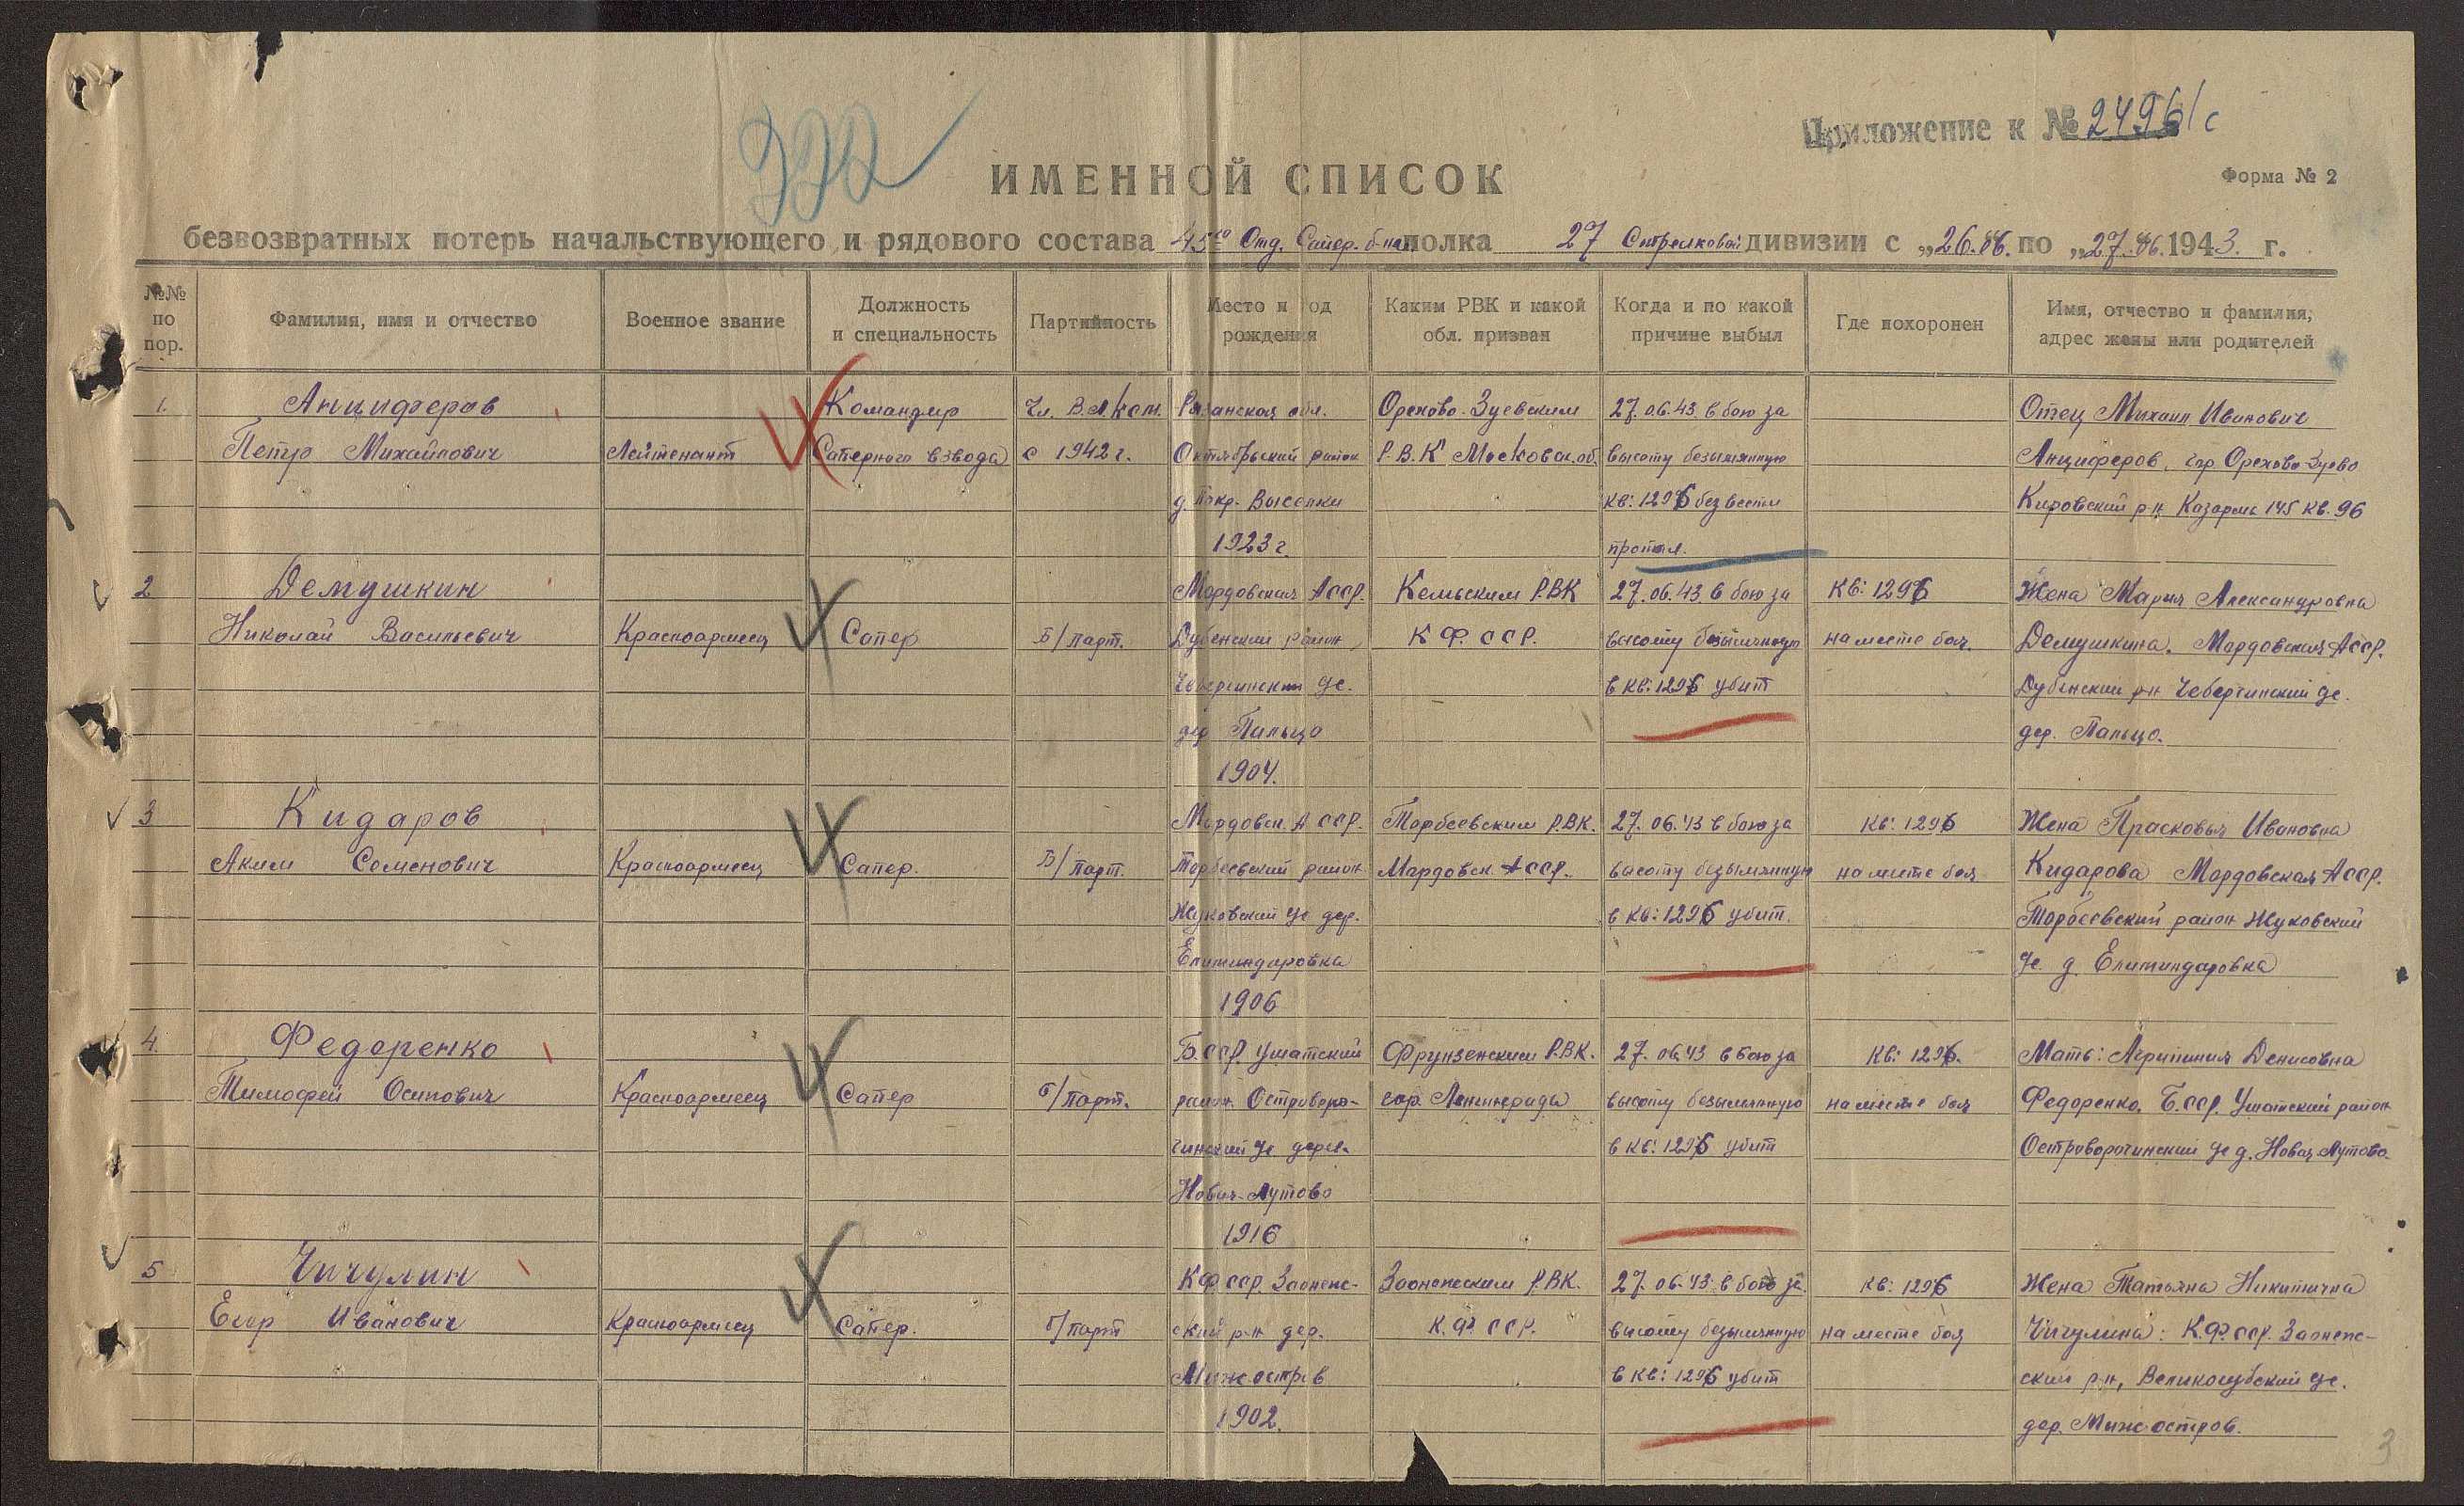 Приложение к № 2496/с
ИМЕННОЙ СПИСОК
Форма № 2
безвозвратных потерь начальствующего и рядового состава 45го Отд. Сапер. б-на полка 27 Стрелковой дивизии с „26.06. по „27.06. 1943. г.
№№ по пор.
Фамилия, имя и отчество
Военное звание
Должность и специальность
Партийность
Место и год рождения
Каким РВК и какой обл. призван
Когда и по какой причине выбыл
Где похоронен
Имя, отчество и фамилия, адрес жены или родителей
1. Анциферов Командир Чл. ВЛКСМ. Рязанская обл. Орехово-Зуевским 27.06.43. в бою за Отец Михаил Иванович
Петр Михайлович Лейтенант Саперного взвода с 1942 г. Октябрьский район Р.В.К Московск. об. высоту безымянную Анциферов, гор Орехово Зуево
д. Покр. Выселки кв: 1296 без вести Кировский р-н Казарма 145 кв. 96
1923 г. пропал.
2 Демушкин Мордовская АССР. Кемьским Р.ВК 27.06.43. в бою за Кв: 1296 Жена Мария Александровна
Николай Васильевич Красноармеец Сапер Б/парт. Дубенский район, К Ф. ССР. высоту безымянную на месте боя. Демушкина. Мордовская АССР.
Чеберчинский с/с. в кв: 1296 убит Дубенский р-н Чеберчинский с/с.
дер Пальцо дер. Пальцо.
1904.
3 Кидаров Мордовск. АССР. Торбеевским Р.ВК. 27.06.43 в бою за Кв: 1296 Жена Прасковья Ивановна
Аким Семенович Красноармеец Сапер. Б/парт. Торбеевский район Мордовск. АССР. высоту безымянную на месте боя Кидарова Мордовская АССР.
Жуковский с/с дер. в кв: 1296 убит. Торбеевский район Жуковский
1906
4. Федоренко Б.ССР. Ушатский Фрунзенским Р.ВК. 27.06.43 в бою за Кв: 1296. Мать: Агрипиния Денисовна
Тимофей Осипович Красноармеец Сапер б/парт. район. гор. Ленинграда высоту безымянную на месте боя Федоренко. Б.ССР. Ушатский район
в кв: 1296 убит
1916
5 Чичулин КФССР. Заонежс- Заонежским Р.ВК. 27.06.43 в бою за Кв: 1296 Жена Татьяна Никитична
Егор Иванович Красноармеец Сапер. б/парт ский р-н дер. К.Ф ССР. высоту безымянную на месте боя Чичулина: К.Ф.ССР. Заонежс-
Мижостров в кв: 1296 убит ский р-н, Великогубский с/с.
1902. дер. Мижостров.
3